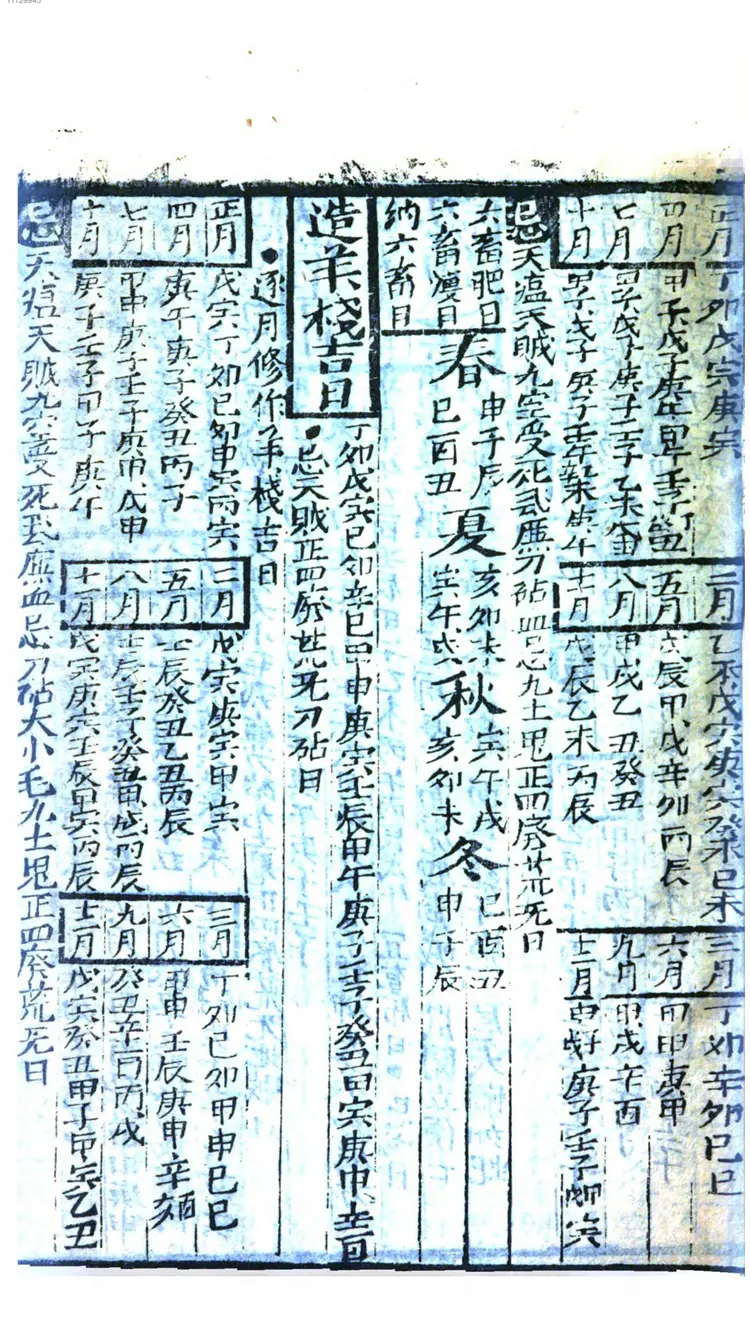 正月 丁卯戊寅庚寅 二月 乙未戊寅庚寅癸未己未 三月 丁卯辛卯己巳
四月 甲子戊子庚午 五月 戊辰甲戌辛卯丙辰 六月 甲申庚申
七月 甲子戊子庚子壬子乙未 八月 甲戌乙丑癸丑 九月 甲戌辛酉
十月 甲子戊子庚子 庚午 十一月 戊辰乙未丙辰 十二月 庚子壬子 寅
忌 天瘟天賊九空受死 刀砧血忌九土鬼正四廢荒死日
六畜肥日 春 申子辰 夏 亥卯未 秋 寅午戌 冬 巳酉丑
六畜瘦日
納六畜日 巳酉丑 寅午戌 亥卯未 申子辰
造羊棧吉日 丁卯戊寅己卯辛巳甲申庚寅壬辰甲午庚子壬子癸丑甲寅庚申辛酉
•忌天賊正四廢荒死刀砧日
•逐月修作羊棧吉日
正月 戊寅丁卯己卯甲寅丙寅 二月 戊寅庚寅甲寅 三月 丁卯己卯甲申己巳
四月 庚午庚子癸丑丙子 五月 壬辰癸丑乙丑丙辰 六月 甲申壬辰庚申辛
七月 甲申庚子壬子庚申戊申 八月 壬辰壬子癸丑甲戌丙辰 九月 癸丑辛酉丙戌
十月 庚子壬子甲子庚午 十一月 戊寅庚寅壬辰甲寅丙辰 十二月 戊寅癸丑甲子甲寅乙丑
忌 天瘟天賊九空受死 血忌刀砧大小毛九土鬼正四廢荒死日